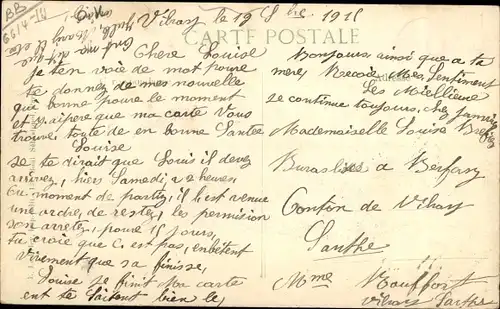 BB
Vibray le 19 8bre 1915
CARTE POSTALE
Chere Louise
je ten voie de mot pour
te donnez de mes nouvelle
qui bonne pour le moment
et j'aipere que ma carte Vous
trouve toute de en bonne Santee
Louise
Je te dirait que Louis il devez
arrivez, hiers Samedi, a 2 heures
Ou moment de partir, il est venue
une ordre, de restez, les permision
son arretez, pour 15 jours,
tu croie que C, est pas, enbetent
Virement que sa finisse,
Louise je finit Ma carte
ent te Saitent bien le
Bonjours, ainsi que a ta
mere, Recoie Mes Sentiment
Les Meillieure
je continue toujours, chez
Mademaiselle Louise
a Berfay
Conton de Vibray
Sarthe
Mme Rouffort
Vibray Sarthe